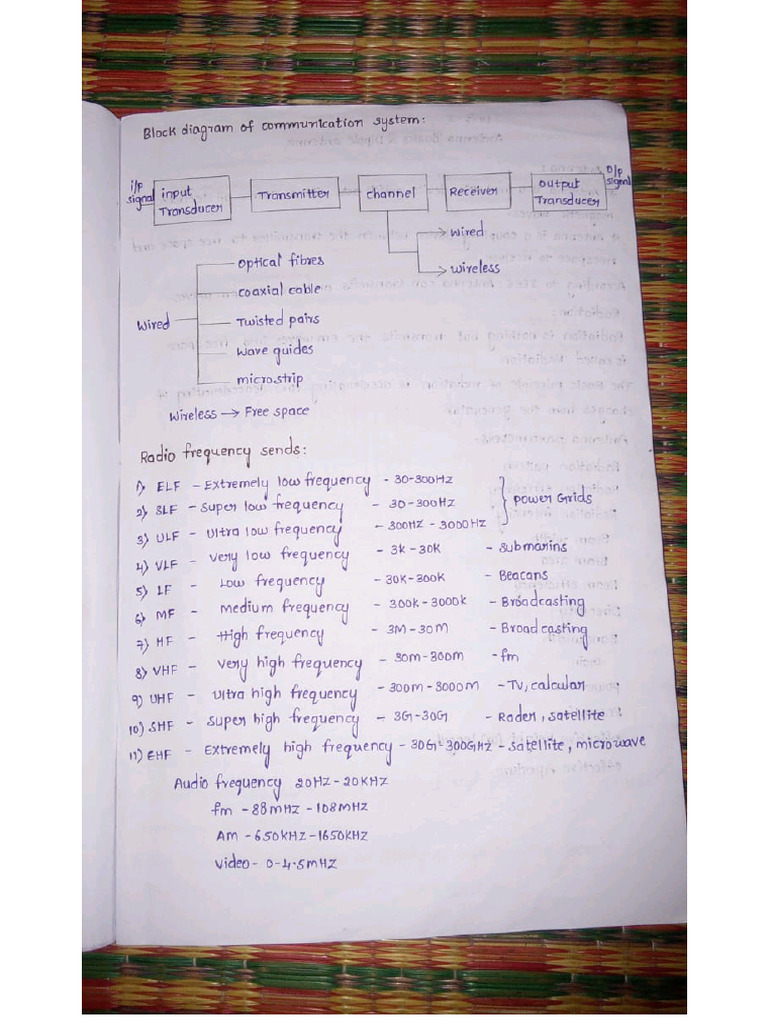 Block diagram of communication system:
i/p signal
input Transducer
Transmitter
channel
Receiver
output Transducer
O/p signal
wired
wireless
wired
optical fibres
coaxial cable
Twisted pairs
wave guides
microstrip
wireless → Free space
Radio frequency sends:
1) ELF - Extremely low frequency - 30-300HZ
2) SLF - Super low frequency - 30-300HZ
3) ULF - Ultra low frequency - 300HZ - 3000HZ
power Grids
4) VLF - very low frequency - 3K - 30K - submarins
5) LF - Low frequency - 30K - 300K - Beacans
6) MF - Medium frequency - 300K - 3000K - Broadcasting
7) HF - High frequency - 3M - 30M - Broadcasting
8) VHF - very high frequency - 30m - 300m - fm
9) UHF - Ultra high frequency - 300M - 3000M - TV, calcular
10) SHF - super high frequency - 3G - 30G - Rader, satellite
11) EHF - Extremely high frequency - 30G - 300GHZ - satellite, microwave
Audio frequency 20HZ - 20KHZ
fm - 88MHZ - 108MHZ
AM - 650KHZ - 1650KHZ
video - 0-4.5mHZ